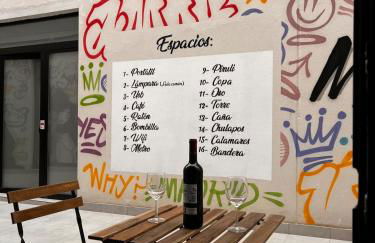 Espacios:
1- Portátil
2- Lámpara (Sala común)
3- Usb
4- Café
5- Ratón
6- Bombilla
7- Wifi
8- Metro
9- Pirulí
10- Copa
11- Oso
12- Torre
13- Caña
14- Chulapos
15- Calamares
16- Bandera
YES
WHY?